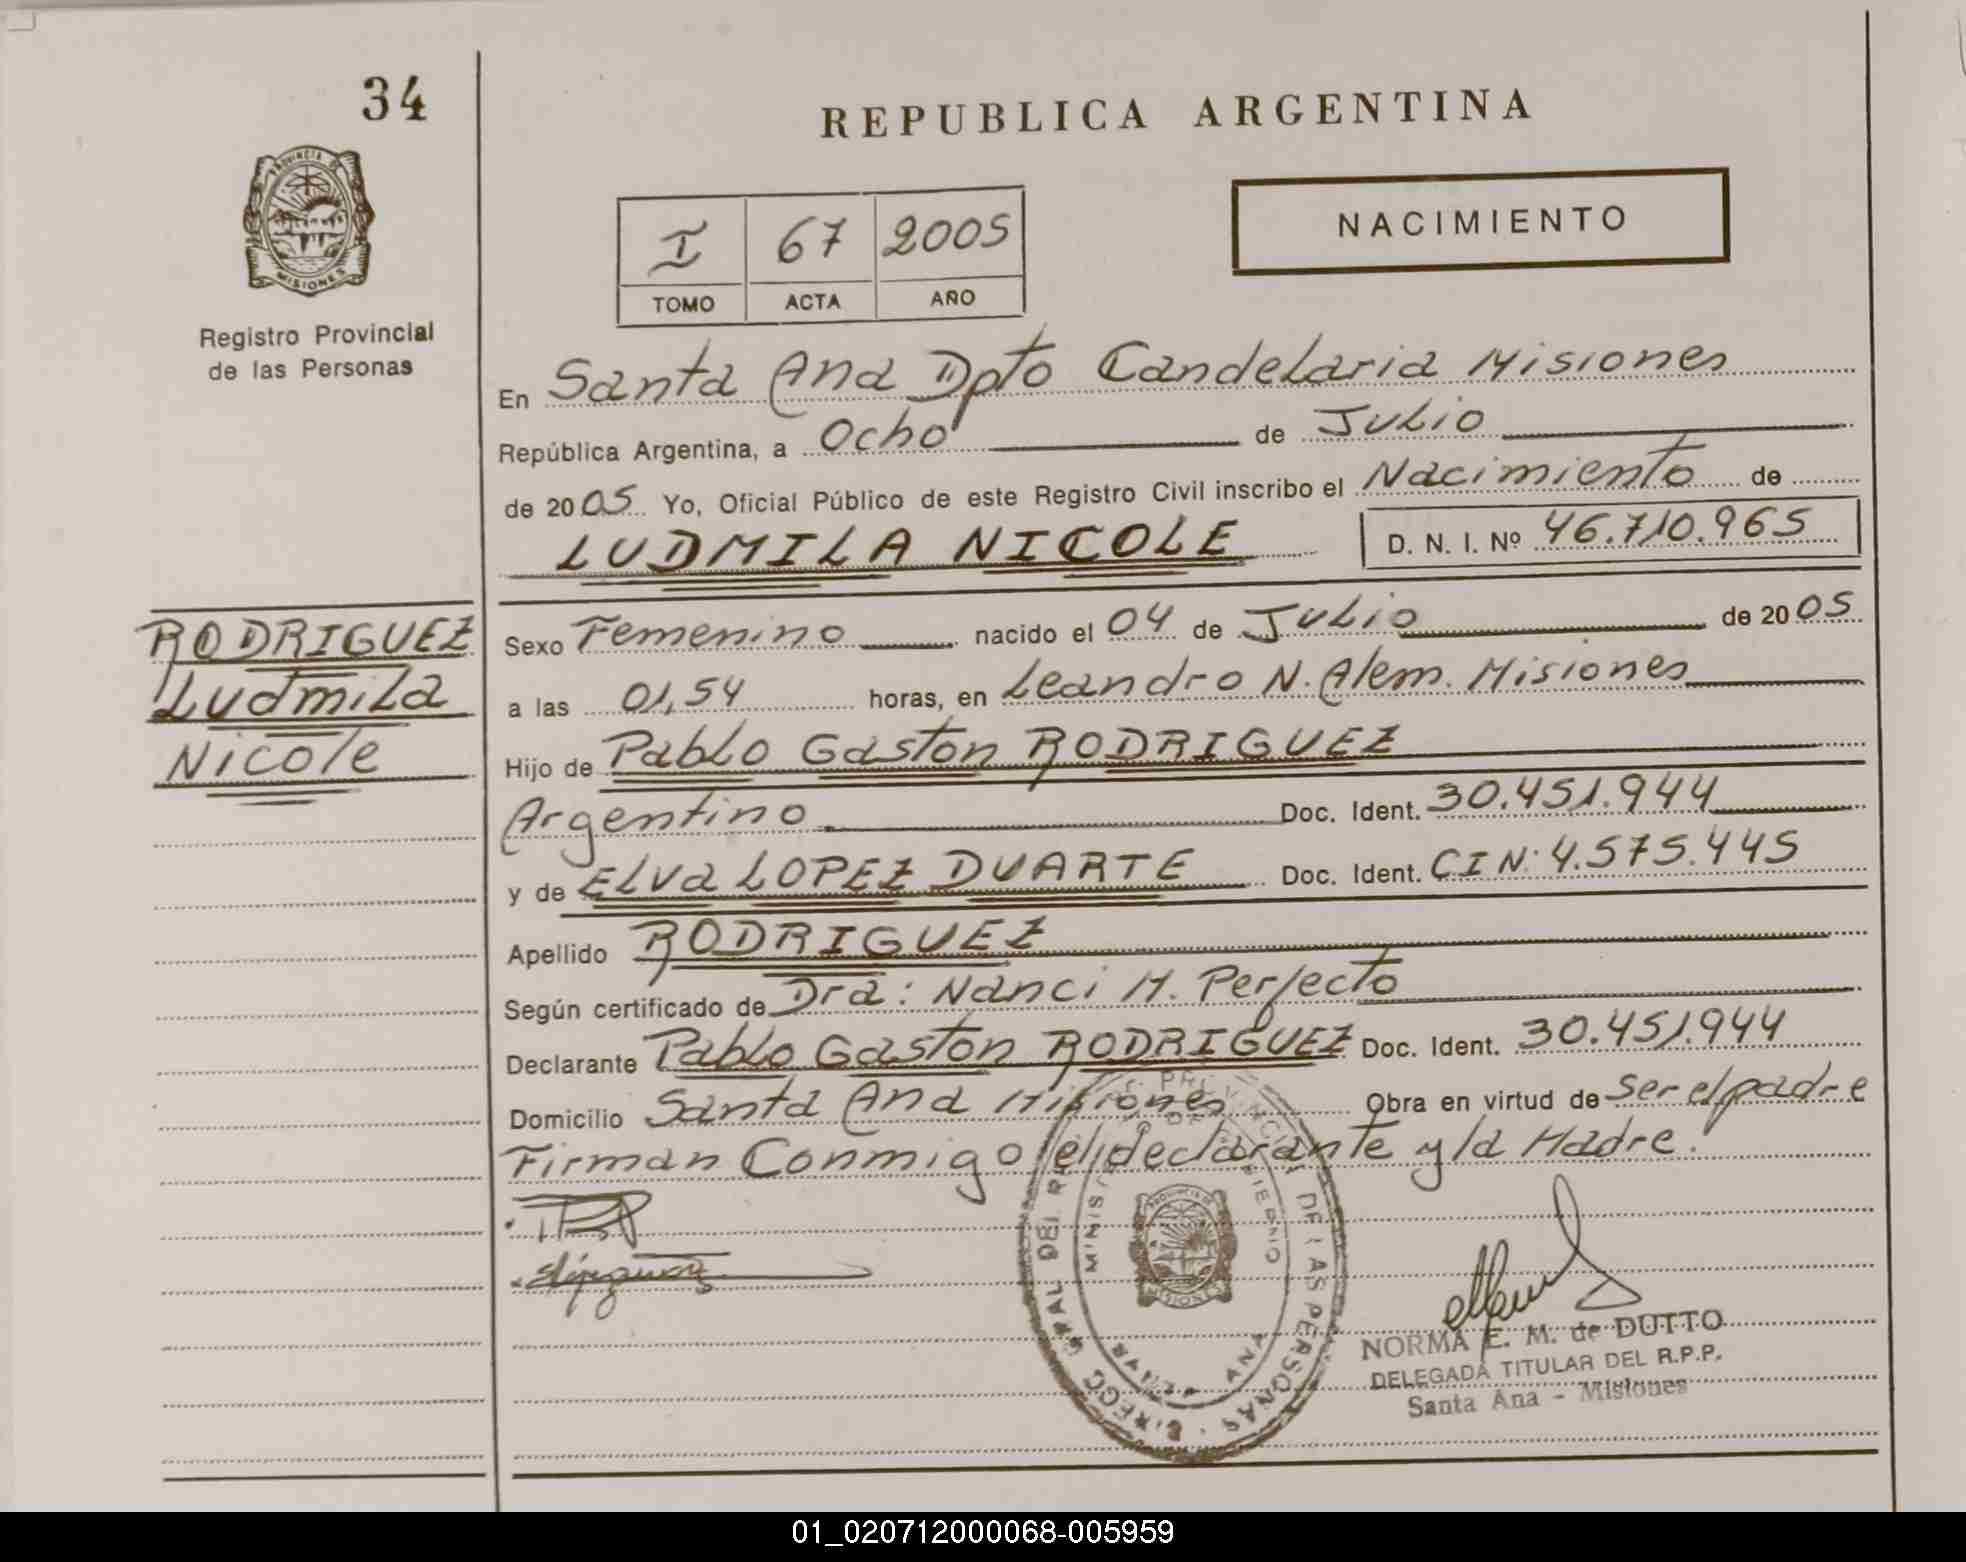 34
REPUBLICA ARGENTINA
PROVINCIA DE
MISIONES
Registro Provincial
de las Personas
I 67 2005
TOMO ACTA AÑO
NACIMIENTO
En Santa Ana Dpto Candelaria Misiones
República Argentina, a Ocho de Julio
de 2005 Yo, Oficial Público de este Registro Civil inscribo el Nacimiento de
LUDMILA NICOLE D. N. I. Nº 46.710.965
RODRIGUEZ
Ludmila
Nicole
Sexo Femenino nacido el 04 de Julio de 2005
a las 01,54 horas, en Leandro N. Alem. Misiones
Hijo de Pablo Gaston RODRIGUEZ
Argentino Doc. Ident. 30.451.944
y de ELVa LOPEZ DUARTE Doc. Ident. CIN: 4.575.445
Apellido RODRIGUEZ
Según certificado de Dra: Nanci M. Perfecto
Declarante Pablo Gaston RODRIGUEZ Doc. Ident. 30.451.944
Domicilio Santa Ana Misiones Obra en virtud de Ser el padre
Firman Conmigo el declarante y la Madre.
PROVINCIA DE
MISIONES
DE LAS PERSONAS
ANA
NORMA E. M. de DUTTO
DELEGADA TITULAR DEL R.P.P.
Santa Ana - Misiones
01_020712000068-005959